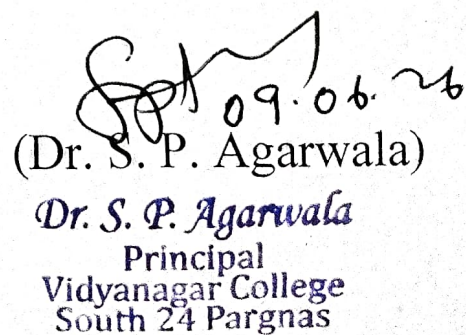 09.06.26
(Dr. S. P. Agarwala)
Dr. S. P. Agarwala
Principal
Vidyanagar College
South 24 Pargnas